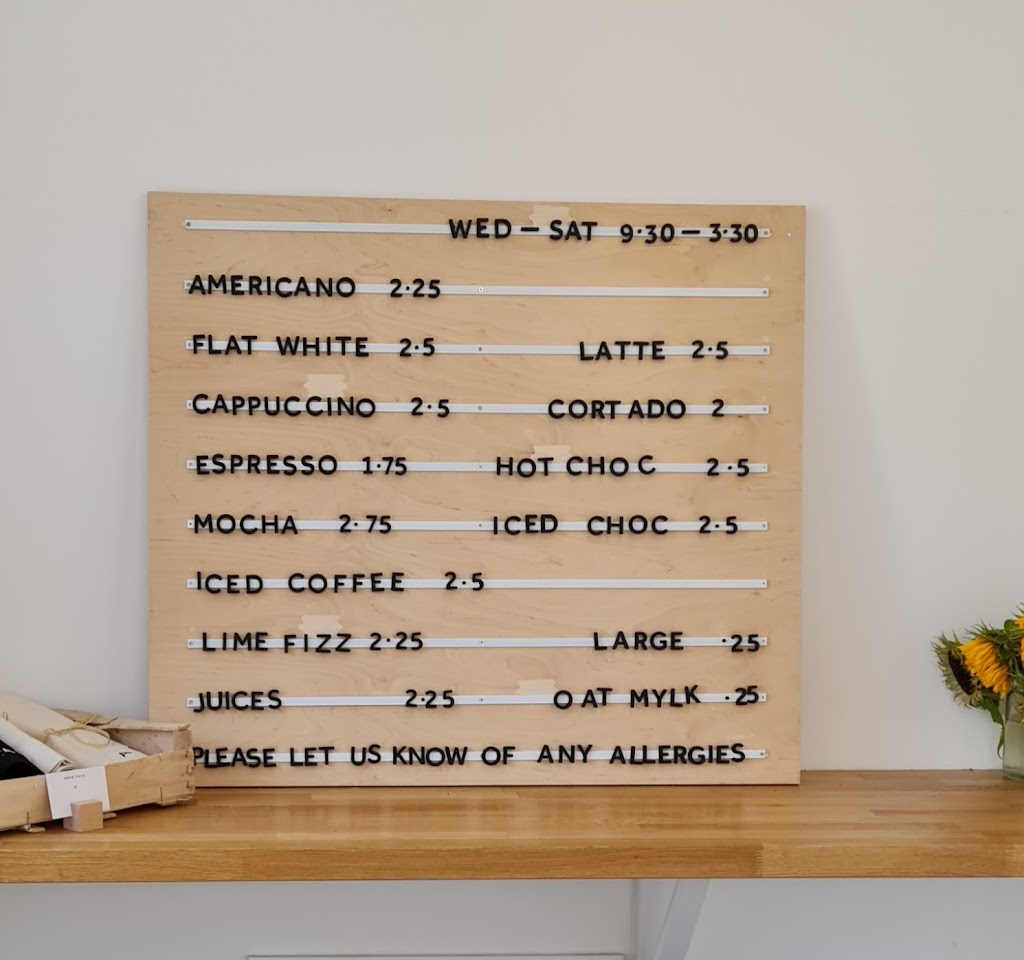 WED — SAT 9·30 — 3·30
AMERICANO 2·25
FLAT WHITE 2·5 LATTE 2·5
CAPPUCCINO 2·5 CORTADO 2
ESPRESSO 1·75 HOT CHOC 2·5
MOCHA 2·75 ICED CHOC 2·5
ICED COFFEE 2·5
LIME FIZZ 2·25 LARGE ·25
JUICES 2·25 OAT MYLK ·25
PLEASE LET US KNOW OF ANY ALLERGIES